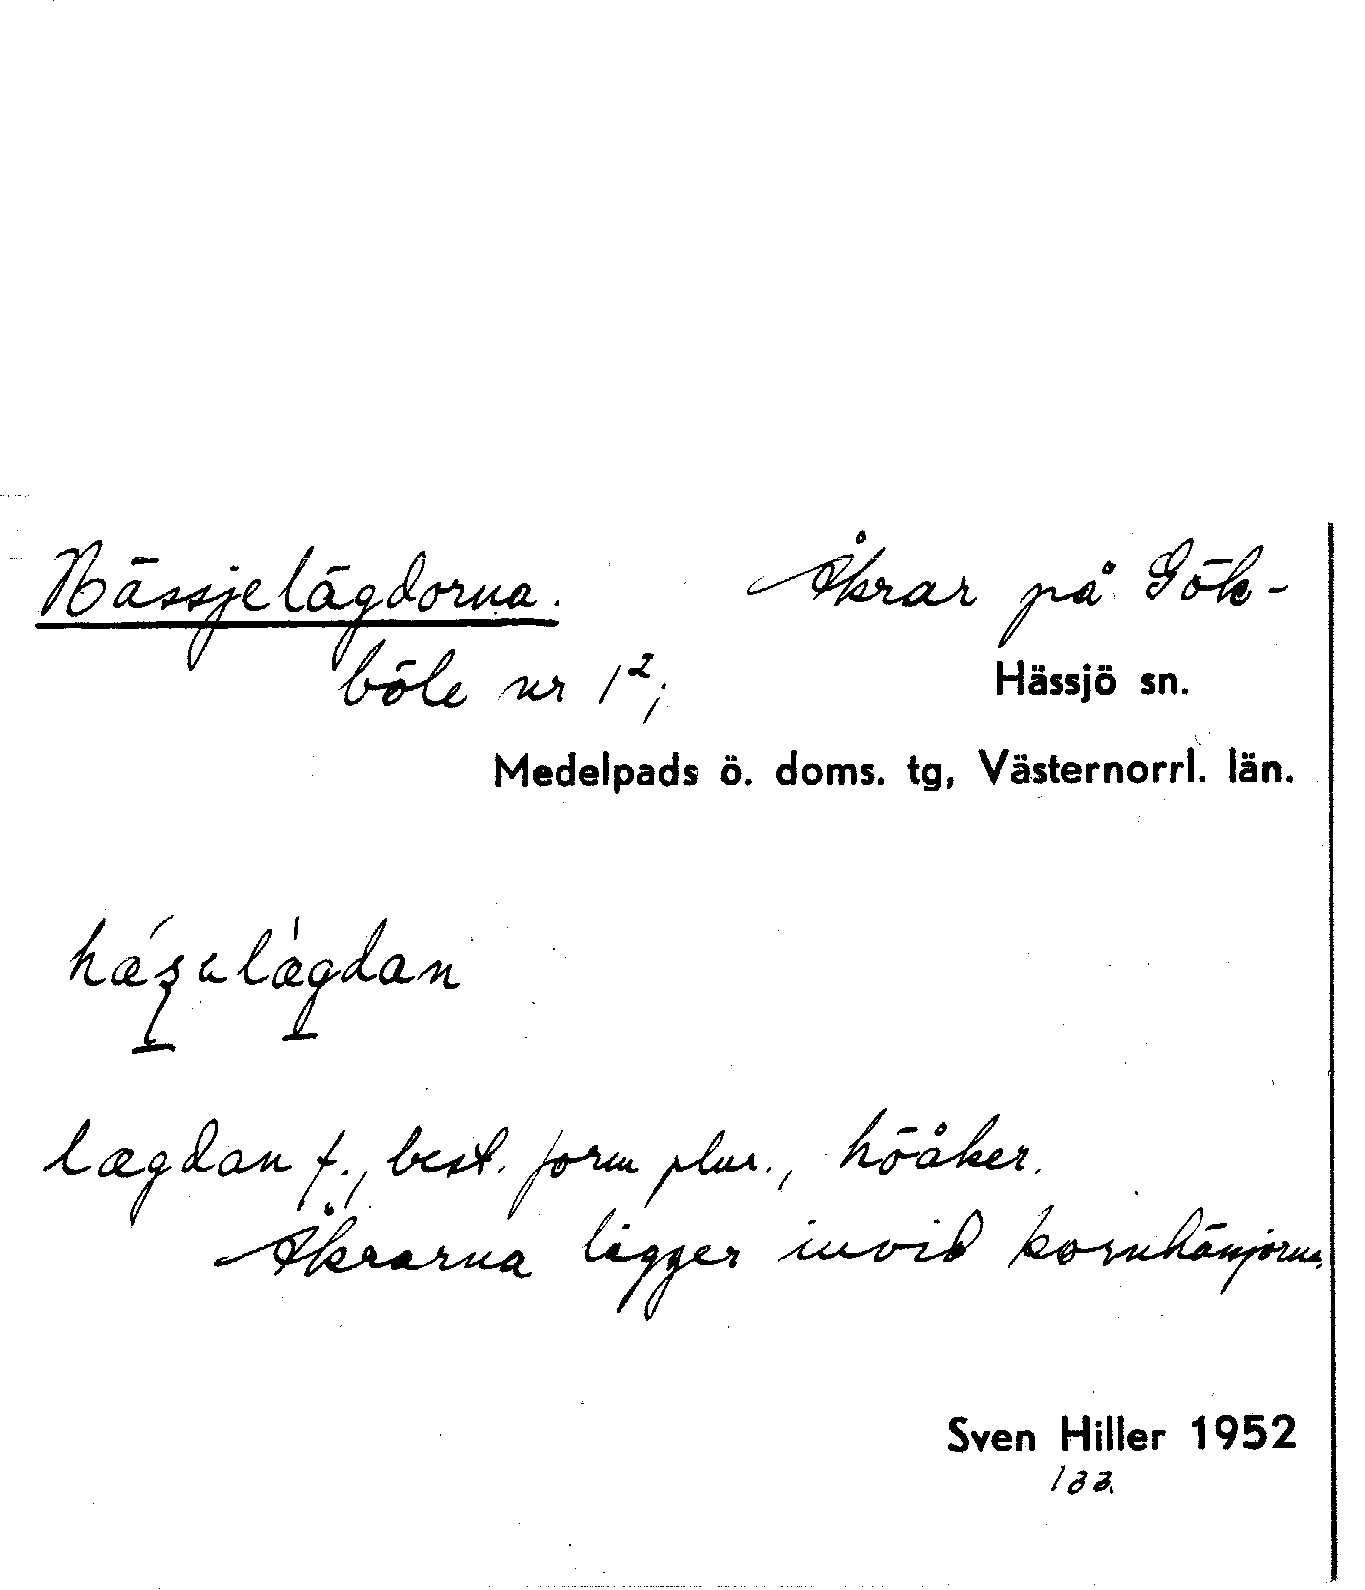 Hässjelägdorna. Åkrar på Gök-
böle nr 1²; Hässjö sn.
Medelpads ö. doms. tg, Västernorrl. län.
lægdan f., best. form plur., höåker.
Åkrarna ligger invid kornhänjorna.
Sven Hiller 1952
133.